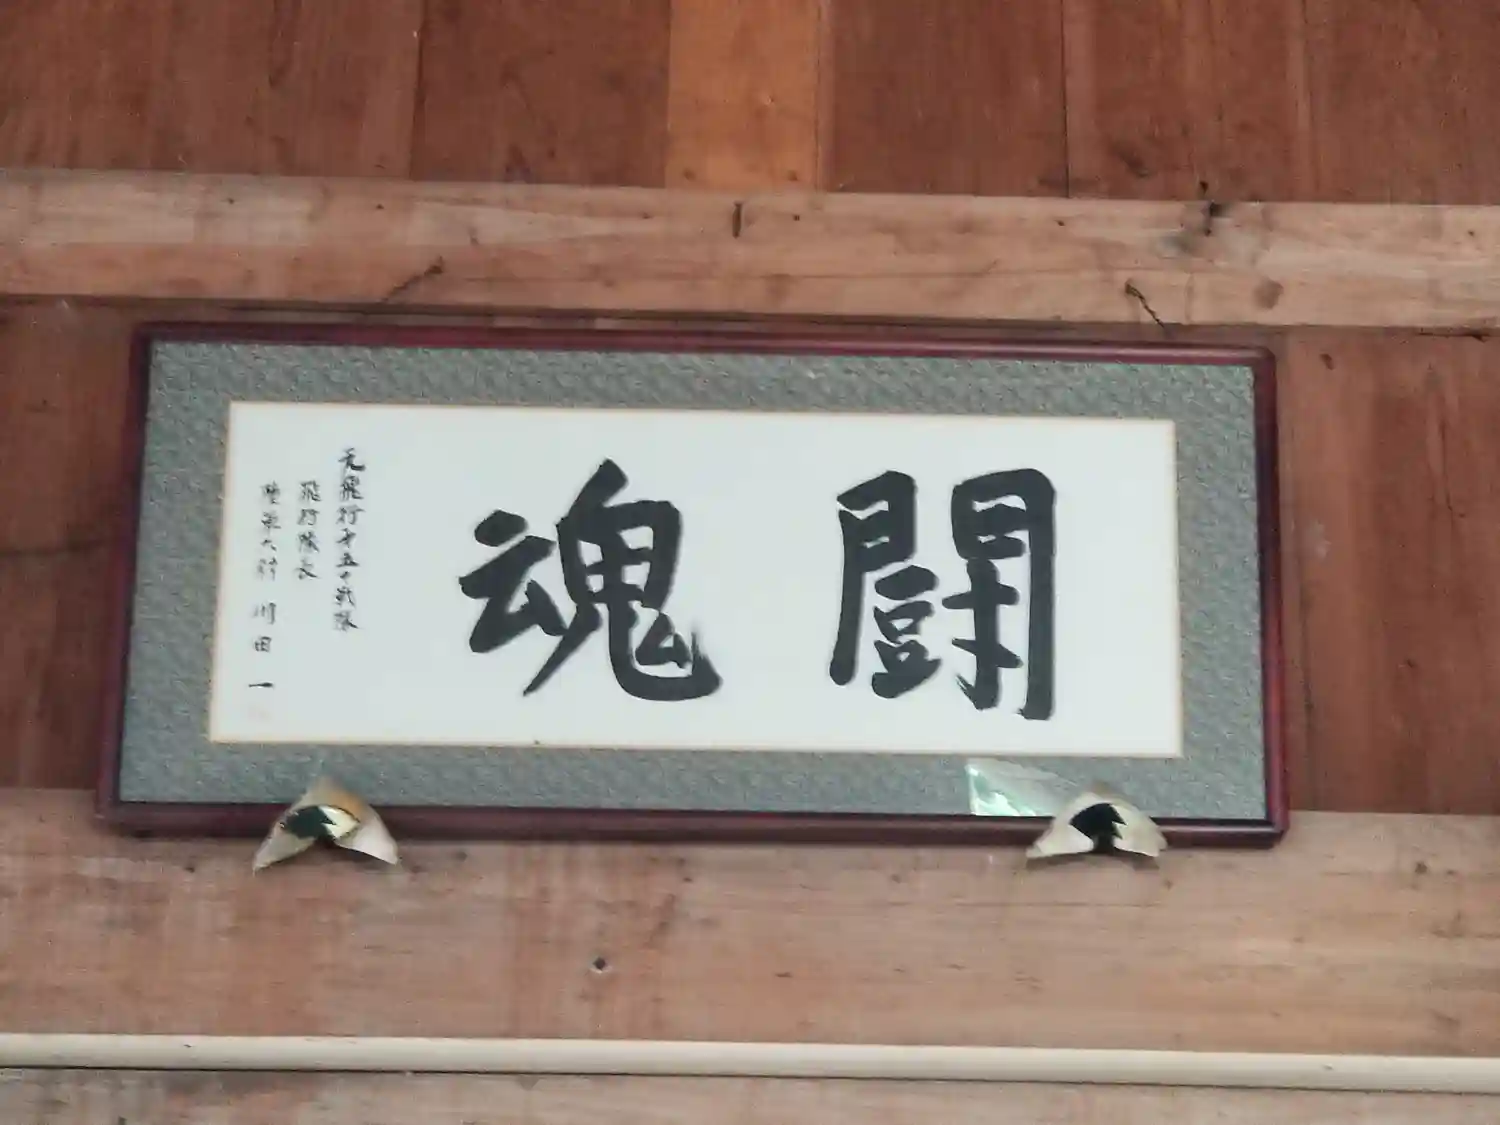 闘魂
元飛行第五十戦隊
飛行隊長
陸軍大尉 川田一